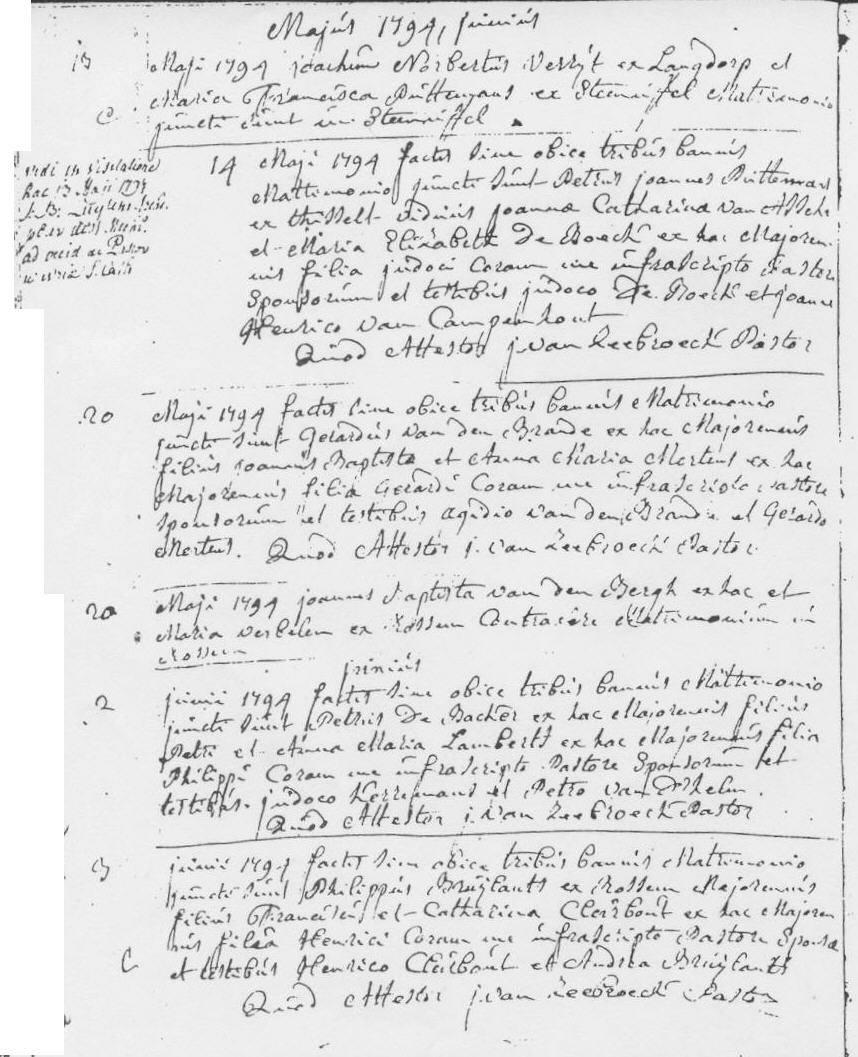 Majus 1794, junius
13 Maji 1794 joachim Norbertus Verryt ex Langdorp et
C Maria Francisca Puttemans ex Steenuffel Matrimonio
juncti sunt in Steenuffel
vidi in visitatione
hac 13 Maii 1794
14 Maji 1794 factis sine obice tribus bannis
Matrimonio juncti sunt Petrus joannes Puttemans
ex thisselt viduus joannæ Catharina van Assche
et Maria Elizabeth De Boeck ex hac Majoren-
nis filia judoci Coram me infrascripto Pastore
Sponsorum et testibus judoco De Boeck et joanne
Henrico van Campenhout
Quod Attestor j. van Leebroeck Pastor
20 Maji 1794 factis sine obice tribus bannis Matrimonio
juncti sunt Gerardus van den Brande ex hac Majorennis
filius joannis Baptista et Anna Maria Mertens ex hac
Majorennis filia Gerardi Coram me infrascripto pastore
sponsorum et testibus agidio van den Brande et Gerardo
Mertens. Quod Attestor j. van Leebroeck Pastor
20 Maji 1794 joannes baptista van den Bergh ex hac et
Maria verbelen ex Rossem Contraxere Matrimonium in
Rossem
junius
2 junii 1794 factis sine obice tribus bannis Matrimonio
juncti sunt Petrus De Backer ex hac Majorennis filius
Petri et Anna Maria Lamberts ex hac Majorennis filia
Philippi Coram me infrascripto Pastore Sponsorum et
testibus judoco Kerremans et Petro van Dhelm.
Quod Attestor j. van Leebroeck Pastor
3 junii 1794 factis sine obice tribus bannis Matrimonio
juncti sunt Philippus Bruylants ex Rossem Majorennis
filius Francisci et Catharina Clerbout ex hac Majoren
C nis filia Henrici Coram me infrascripto Pastore Sponsæ
et testibus Henrico Clerbout et Andrea Bruylants
Quod Attestor j. van Leebroeck Pastor